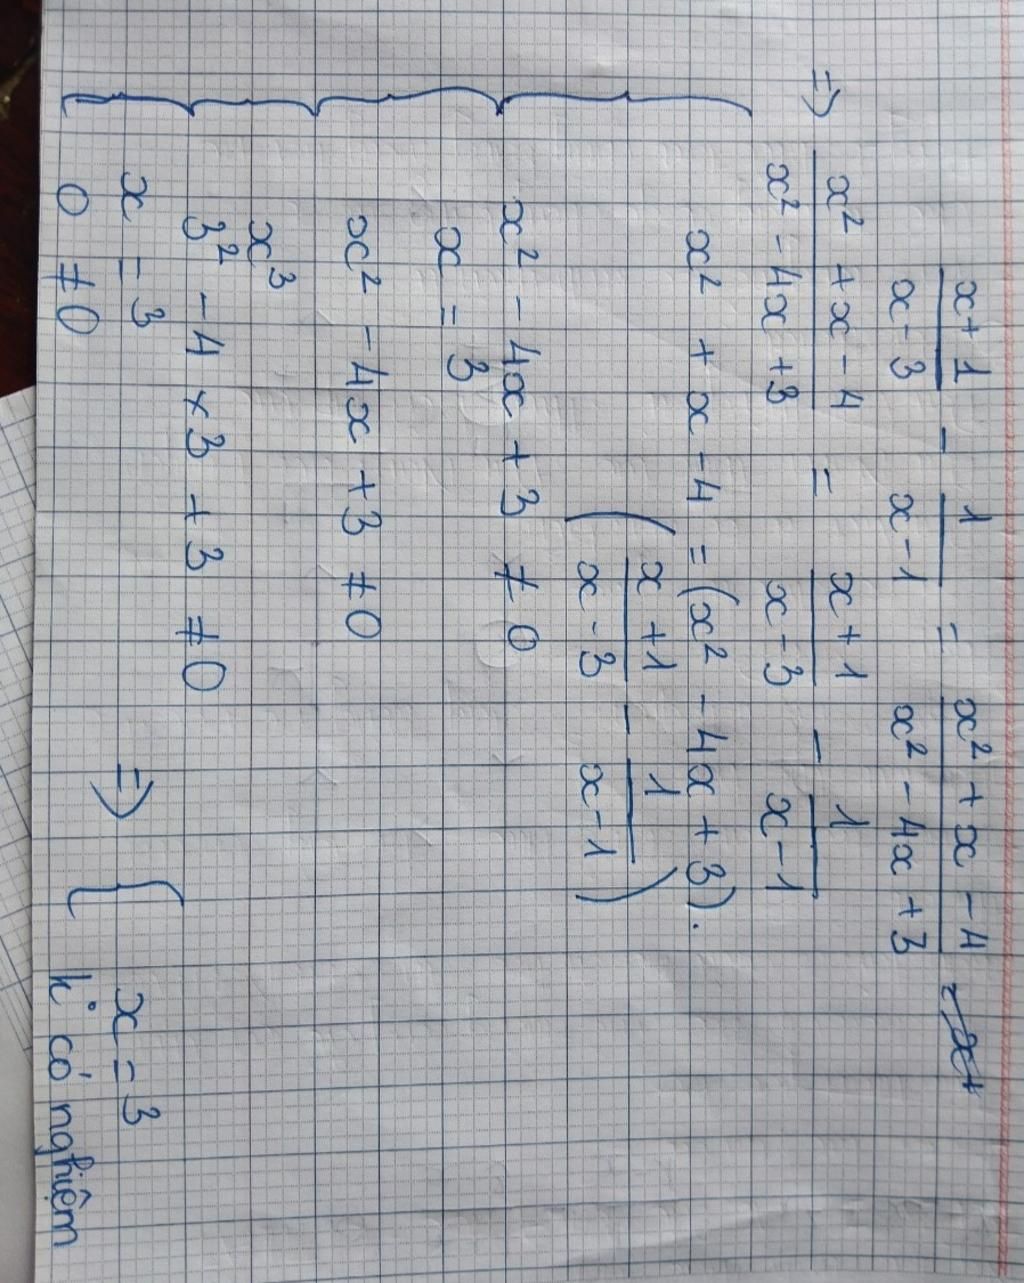 x+1/x-3 - 1/x-1 = x² + x - 4/x² - 4x + 3
=> x² + x - 4/x² - 4x + 3 = x+1/x-3 - 1/x-1
x² + x - 4 = (x² - 4x + 3).
(x+1/x-3 - 1/x-1)
x² - 4x + 3 ≠ 0
x = 3
x² - 4x + 3 ≠ 0
x³
3² - 4 × 3 + 3 ≠ 0
x = 3 => { x = 3
0 ≠ 0 k° có nghiệm